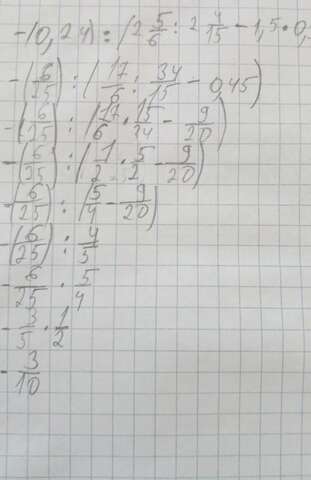 -(0,24) : (2 5/6 : 2 4/15 - 1,5 · 0,
-(6/25) : (17/6 : 34/15 - 0,45)
-(6/25) : (17/6 · 15/34 - 9/20)
-(6/25) : (1/2 · 5/2 - 9/20)
-(6/25) : (5/4 - 9/20)
-(6/25) : 4/5
-6/25 · 5/4
-3/5 · 1/2
-3/10